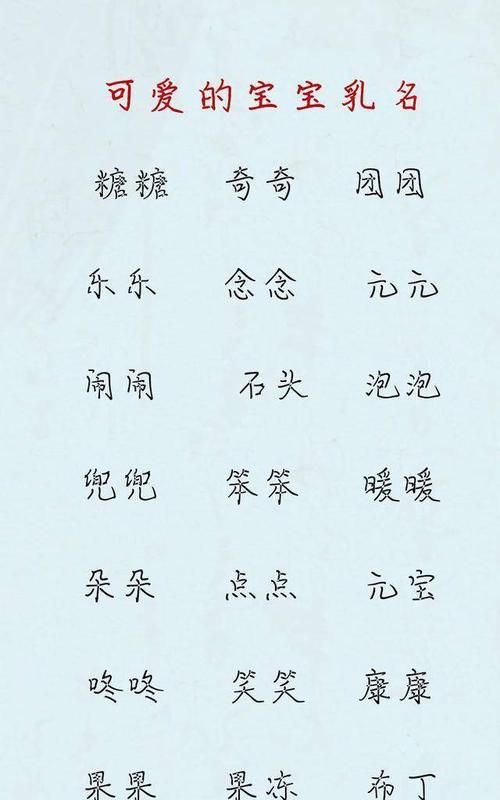 可爱的宝宝乳名
糖糖 奇奇 团团
乐乐 念念 元元
闹闹 石头 泡泡
兜兜 笨笨 暖暖
朵朵 点点 元宝
咚咚 笑笑 康康
果果 果冻 布丁